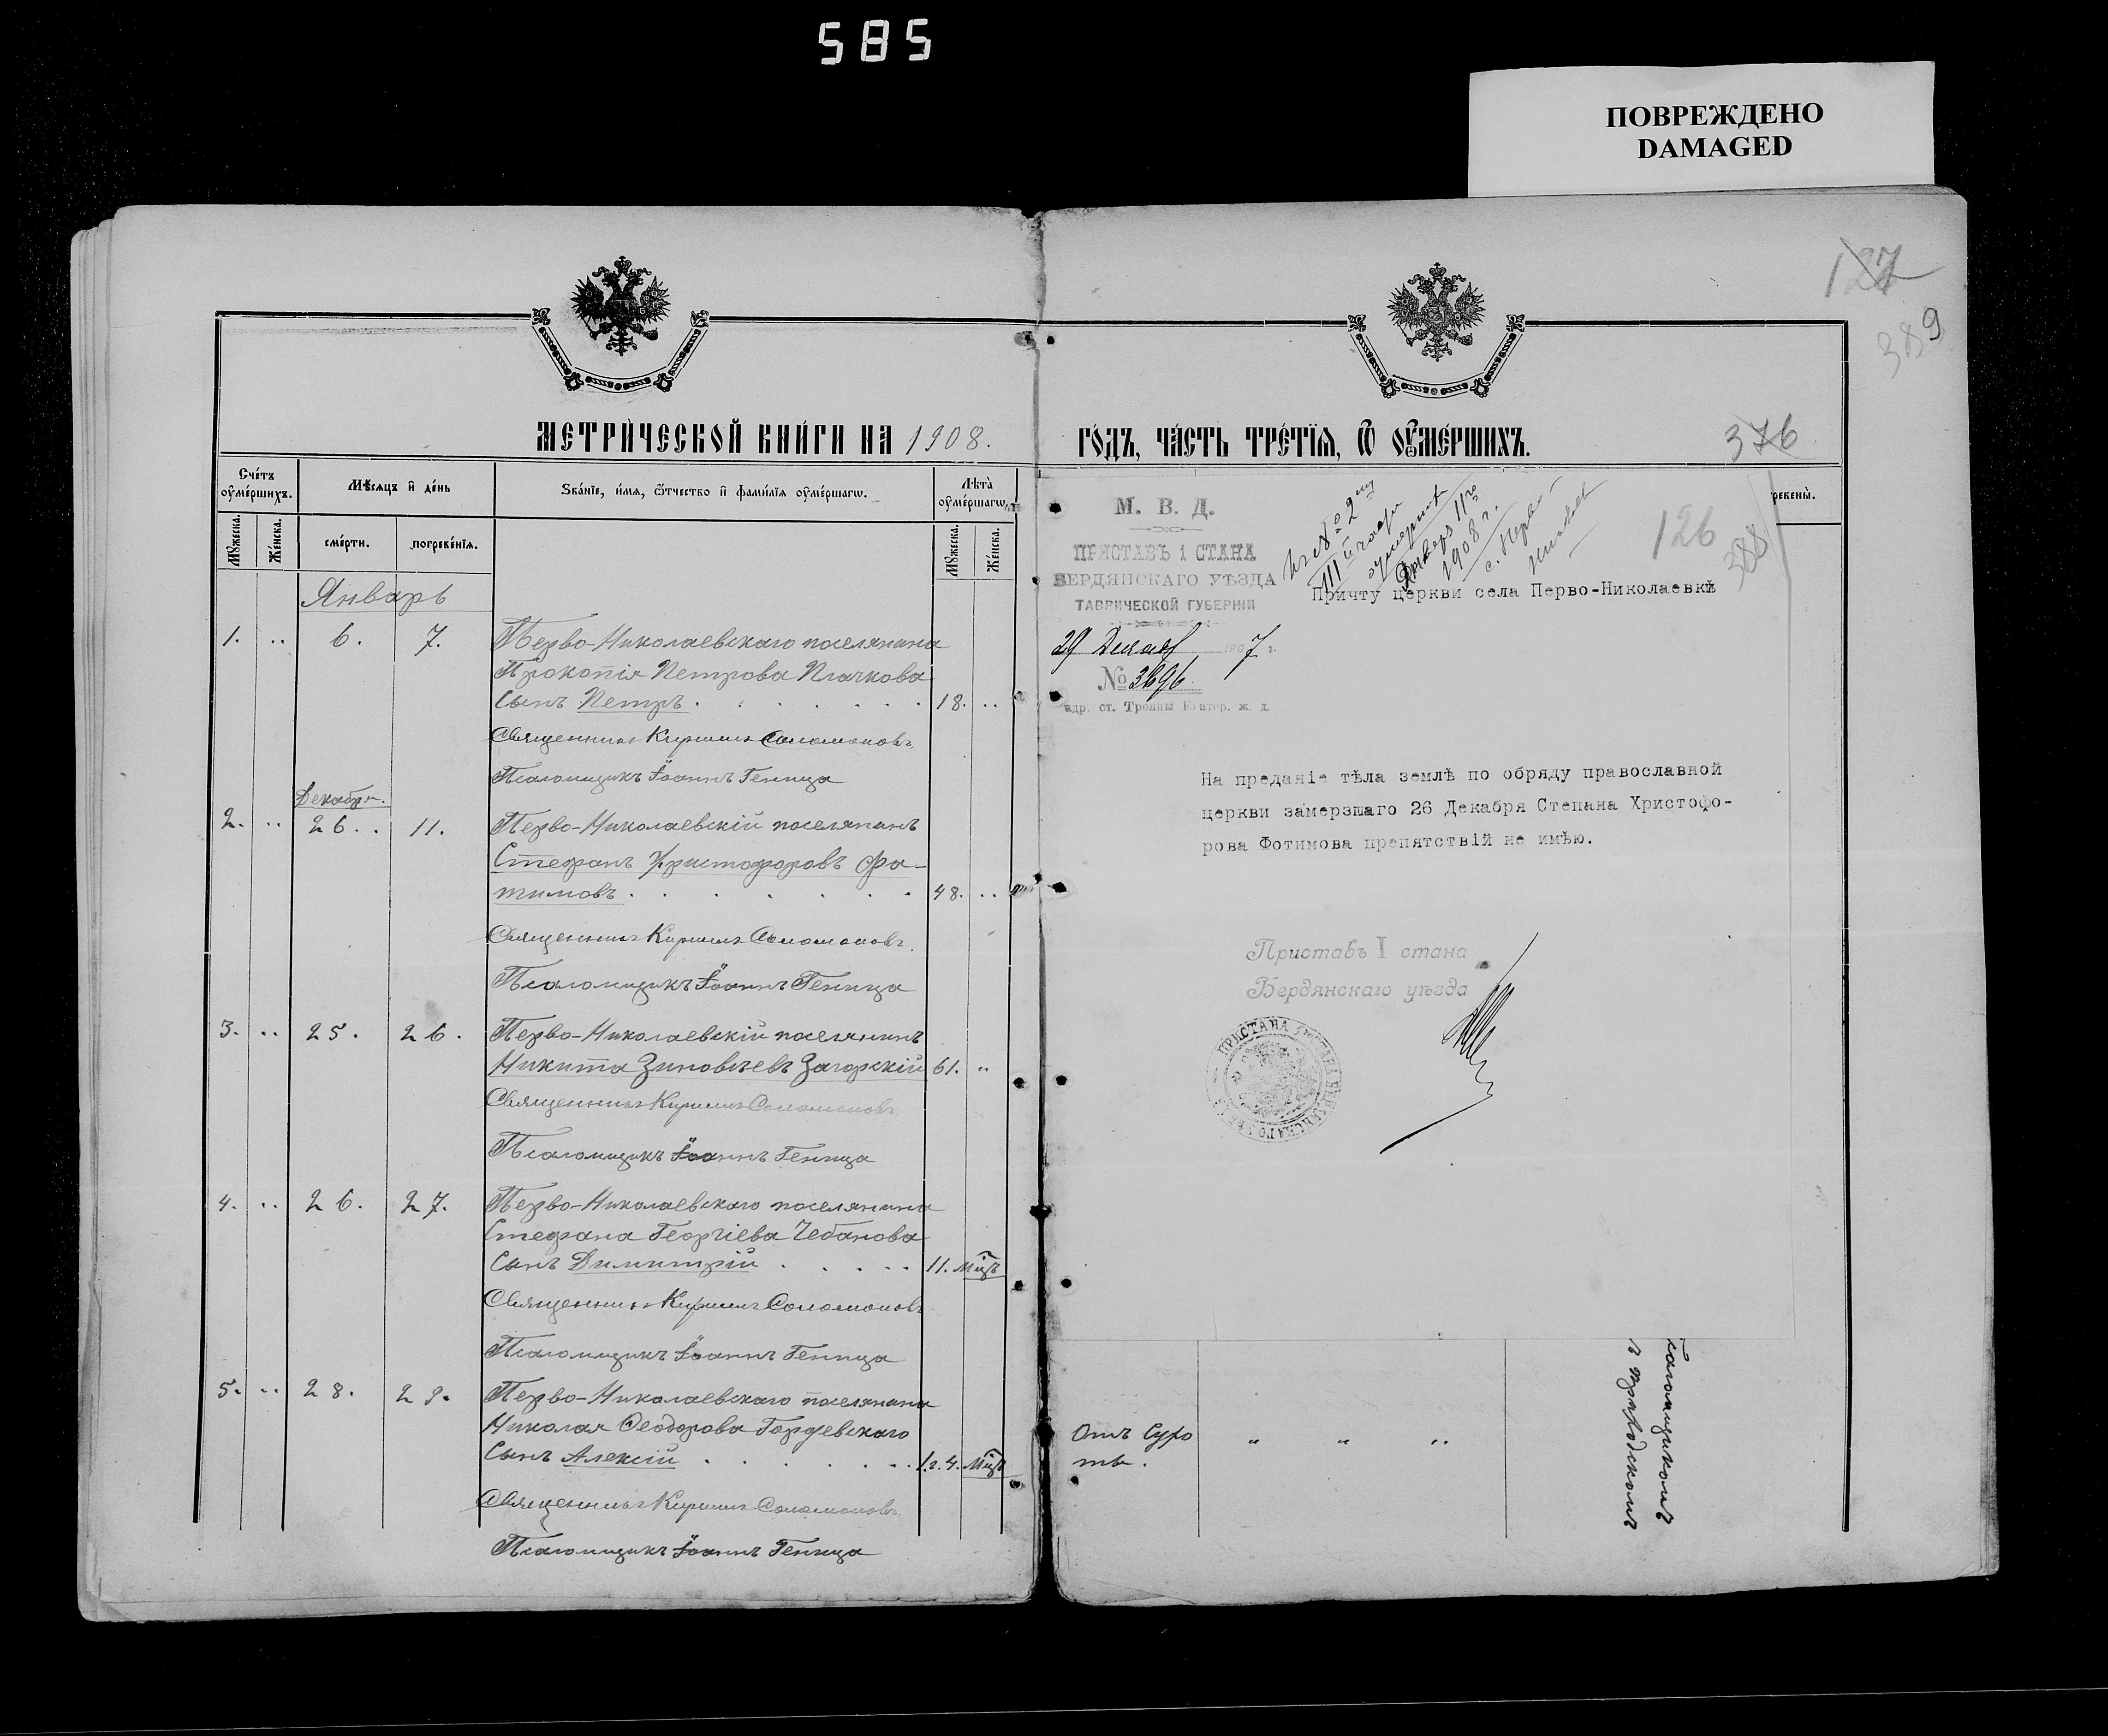 585
ПОВРЕЖДЕНО
DAMAGED
МЕТРИ́ЧЕСКОЙ КНИ́ГИ НА 1908.
Сче́тъ оу҆ме́ршихъ.
Мѣ́сяцъ и҆ де́нь
Ѕва́нїе, и҆́мя, ѻ҆́тчество и҆ фами́лїя оу҆ме́ршагѡ.
Лѣ́та оу҆ме́ршагѡ.
Мꙋ́жеска.
Же́нска.
сме́рти.
погребе́нїя.
Мꙋ́жеска.
Же́нска.
Январь
1. .. 6. 7. Перво-Николаевскаго поселянина
Прокопія Петрова Плачкова
сынъ Петръ. 18. ..
Священникъ Кириллъ Соломоновъ
Псаломщикъ Іоаннъ Геница
Декабря.
2. .. 26.. 11. Перво-Николаевскій поселянинъ
Стефанъ Христофоровъ Фо-
тимовъ. 48. ..
Священникъ Кириллъ Соломоновъ.
Псаломщикъ Іоаннъ Геница
3. .. 25. 26. Перво-Николаевскій поселянинъ
Никита Зиновьевъ Загорскій 61. "
Священникъ Кириллъ Соломоновъ
Псаломщикъ Іоаннъ Геница
4. .. 26. 27. Перво-Николаевскаго поселянина
Стефана Георгіева Чебанова
сынъ Димитрій 11. мцъ
Священникъ Кириллъ Соломоновъ
Псаломщикъ Іоаннъ Геница
5. .. 28. 29. Перво-Николаевскаго поселянина
Николая Ѳеодорова Гордевскаго
сынъ Алексій 1.г. 4. мцъ
Священникъ Кириллъ Соломоновъ
Псаломщикъ Іоаннъ Геница
127
389
ГО́ДЪ, ЧА́СТЬ ТРЕ́ТЇЯ, Ѽ ОУ҆МЕ́РШИХЪ.
376
М. В. Д.
ПРИСТАВЪ 1 СТАНА
БЕРДЯНСКАГО УѢЗДА
ТАВРИЧЕСКОЙ ГУБЕРНІИ
29 Декаб 1907 г.
№ 3696
адр. ст. Трояны Екатер. ж. д.
Къ № 2му
III й части
умершихъ
Январь 11го
1908 г.
с. Перво-
126
388
Причту церкви села Перво-Николаевкѣ
На преданіе тѣла землѣ по обряду православной
церкви замерзшаго 26 Декабря Степана Христофо-
рова Фотимова препятствій не имѣю.
Приставъ I стана
Бердянскаго уѣзда
Отъ Сухо " " "
ты.
псаломщикомъ